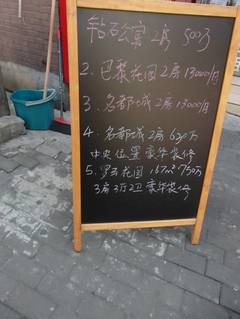 钻石公寓 2房 500万
2. 巴黎花园 2房 13000/月
3. 名都城 2房 13000/月
4. 名都城 2房 630万
中央位置 豪华装修
5. 罗马花园 167㎡ 750万
3房 3厅2卫 豪华装修